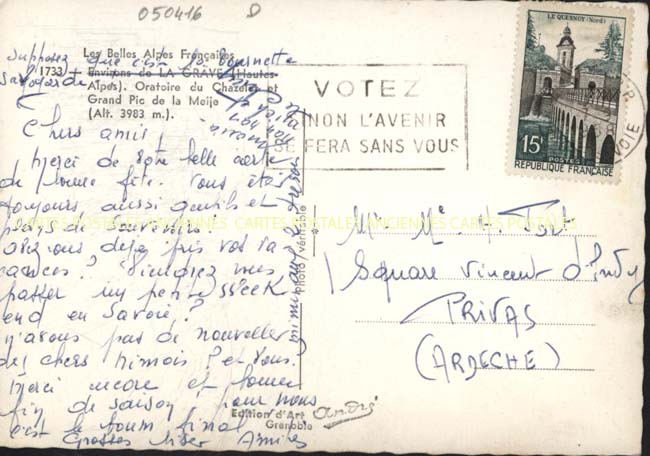 050416 D
Supposez que c'est la
Les Belles Alpes Françaises
1733 + Environs de LA GRAVE (Hautes-
Alpes). Oratoire du Chazelet et
Grand Pic de la Meije
(Alt. 3983 m.).
Chers amis,
Merci de votre belle carte
de bonne fête. Vous êtes
toujours aussi gentils et
pays de souvenirs
avez vous déjà pris vos va
cances? Viendrez vous
passer un petit Week
end en Savoie?
n'avons pas de nouvelles
des chers Nimois? et vous?
Merci encore et bonne
fin de saison, pour nous
c'est le boum final
Grosses bises Amies
photo véritable
Edition d'Art André
Grenoble
VOTEZ
NON L'AVENIR
SE FERA SANS VOUS
LE QUESNOY (Nord)
15F
POSTES
REPUBLIQUE FRANÇAISE
SAVOIE
Mr Me Fort
1 Square Vincent d'Indy
PRIVAS
(ARDECHE)
CARTES POSTALES ANCIENNES CARTES POSTALES ANCIENNES CARTES POSTALES